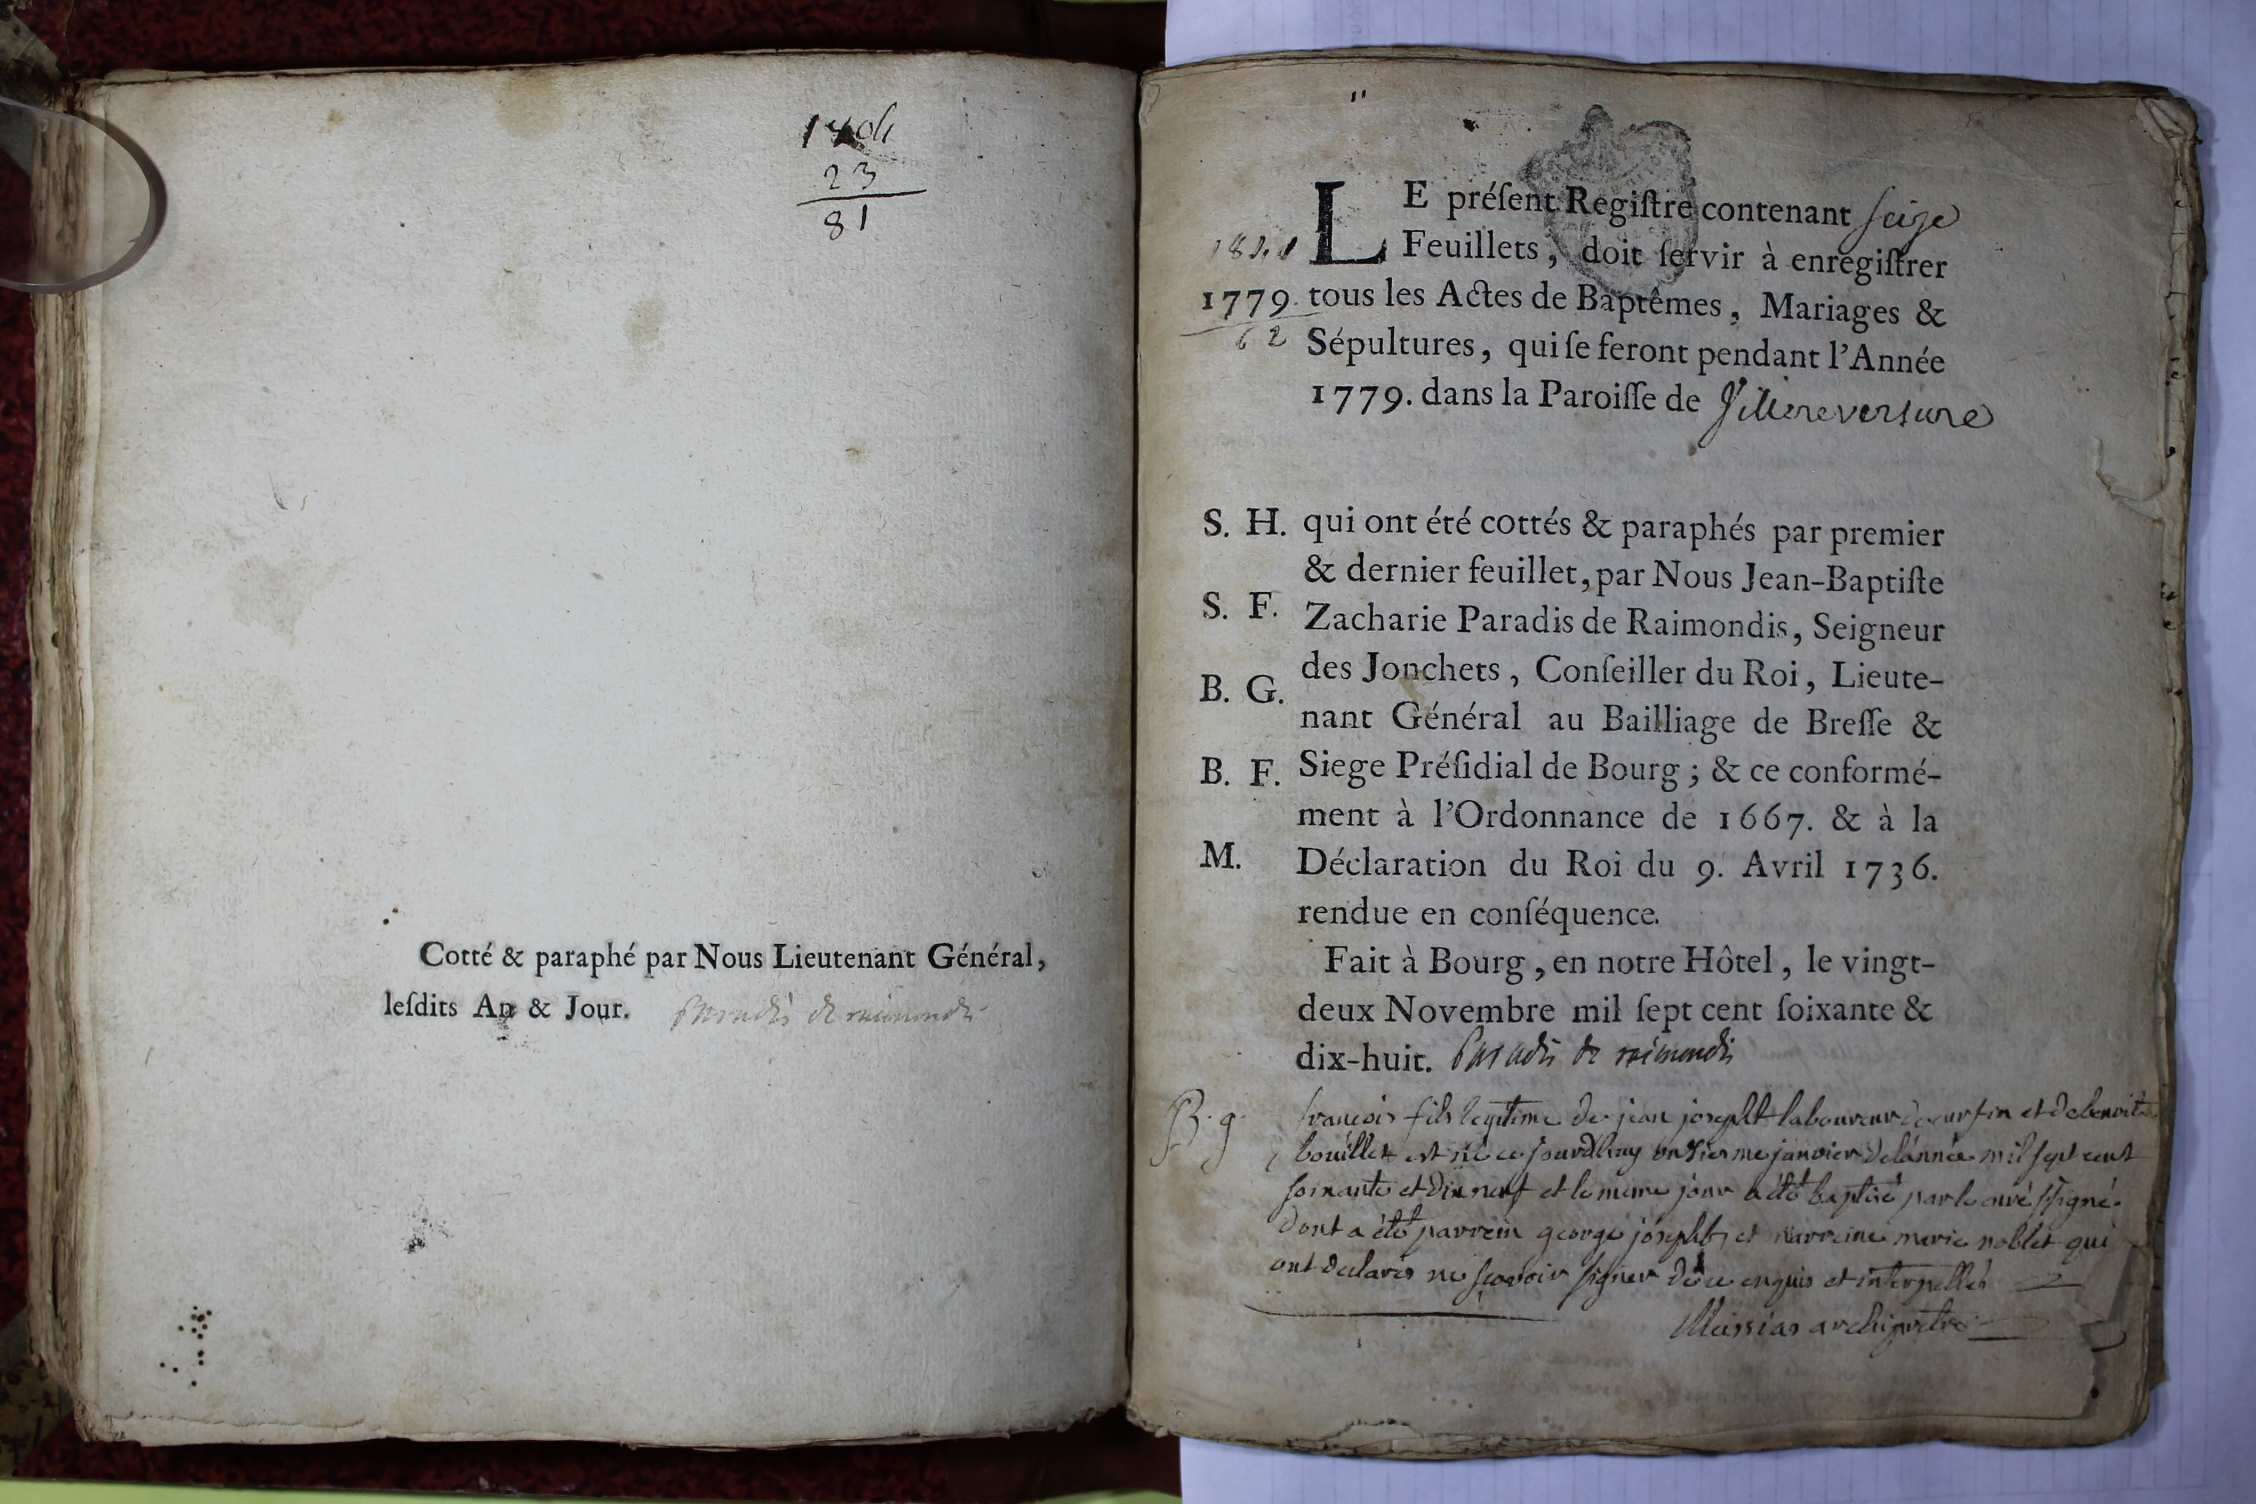 23
81
Cotté & paraphé par Nous Lieutenant Général,
leſdits An & Jour. Paradis de raimondis
LE préſent Regiſtre contenant ſeize
Feuillets, doit ſervir à enregiſtrer
1779. tous les Actes de Baptêmes, Mariages &
62 Sépultures, qui ſe feront pendant l'Année
1779. dans la Paroiſſe de Villereversure
S. H. qui ont été cottés & paraphés par premier
& dernier feuillet, par Nous Jean-Baptiſte
S. F. Zacharie Paradis de Raimondis, Seigneur
des Jonchets, Conſeiller du Roi, Lieute-
B. G. nant Général au Bailliage de Breſſe &
B. F. Siege Préſidial de Bourg ; & ce conformé-
ment à l'Ordonnance de 1667. & à la
M. Déclaration du Roi du 9. Avril 1736.
rendue en conſéquence.
Fait à Bourg, en notre Hôtel, le vingt-
deux Novembre mil ſept cent ſoixante &
dix-huit. Paradis de raimondis
B. g. francois fils legitime de jean josepht laboureur et de benoite
bouillet est né ce jourdhuy onzieme janvier de lannée mil sept cent
soixante et dix neuf et le meme jour a été baptisé par le curé ssigné
dont a été parrein george josepht et marreine marie noblet qui
ont declarés ne scavoir signer de ce enquis et interpellés
Messias archipretre